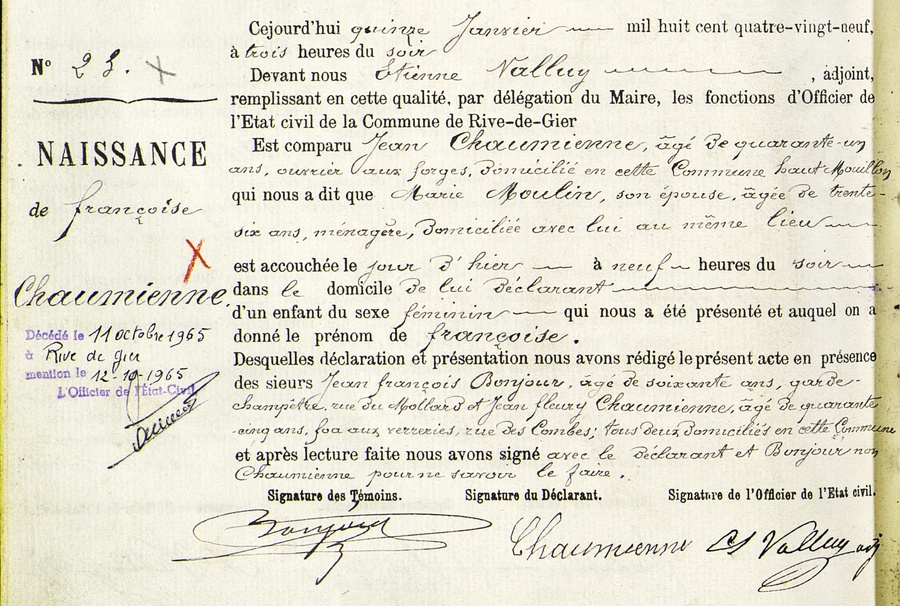 Nº 23.
NAISSANCE
de françoise
Chaumienne.
Décédé le 11 octobre 1965
à Rive de gier
mention le 12-10-1965
L'Officier de l'État-Civil
Cejourd'hui quinze Janvier mil huit cent quatre-vingt-neuf,
à trois heures du soir
Devant nous Etienne Valluy , adjoint,
remplissant en cette qualité, par délégation du Maire, les fonctions d'Officier de
l'Etat civil de la Commune de Rive-de-Gier
Est comparu Jean Chaumienne, âgé de quarante-un
ans, ouvrier aux forges, domicilié en cette Commune haut Mouillon
qui nous a dit que Marie Moulin, son épouse, âgée de trente-
six ans, ménagère, domiciliée avec lui au même lieu
est accouchée le jour d'hier à neuf heures du soir
dans le domicile de lui déclarant
d'un enfant du sexe féminin qui nous a été présenté et auquel on a
donné le prénom de françoise.
Desquelles déclaration et présentation nous avons rédigé le présent acte en présence
des sieurs Jean françois Bonjour, âgé de soixante ans, garde-
champêtre, rue du Mollard et Jean fleury Chaumienne, âgé de quarante
-cinq ans, aux verreries, rue des Combes; tous deux domiciliés en cette Commune
et après lecture faite nous avons signé avec le déclarant et Bonjour non
Chaumienne pour ne savoir le faire.
Signature des Témoins. Signature du Déclarant. Signature de l'Officier de l'Etat civil.
Bonjour Chaumienne Valluy adj